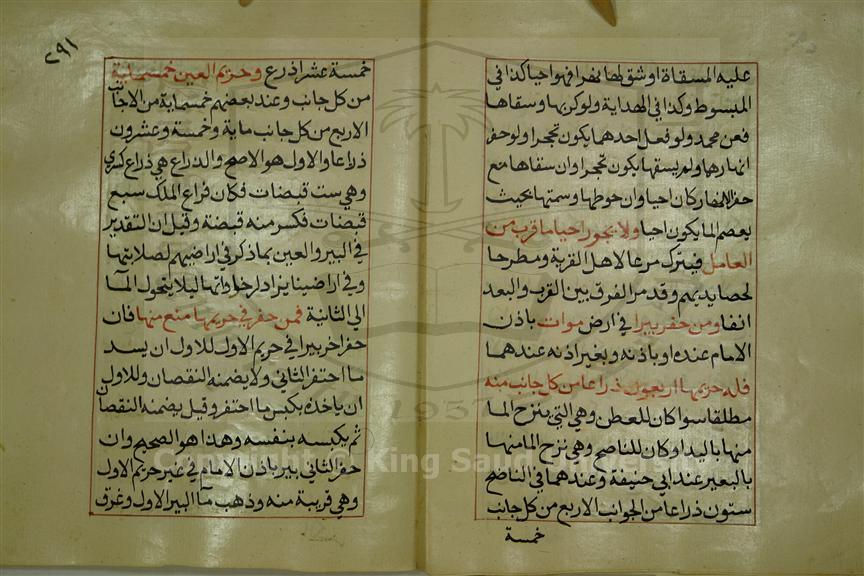 عليه المسقاة او شق لها نهرا فهو احيا كذا في
المبسوط وكذا في الهداية ولو كربها وسقاها
فعن محمد ولو فعل احدهما يكون تحجرا ولو حفر
انهارها ولم يسقها يكون تحجرا وان سقاها مع
حفر الانهار كان احيا وان حوطها وسنمها بحيث
يعصم الما يكون احيا ولا يجوز احيا ما قرب من
العامر فيترك مرعا لاهل القرية ومطرحا
لحصايدهم وقد مر الفرق بين القرب والبعد
انفا ومن حفر بيرا في ارض موات باذن
الامام عنده او باذنه وبغير اذنه عندهما
فله حريمها اربعون ذراعا من كل جانب منه
مطلقا سوا كان للعطن وهي التي ينزح الما
منها باليد او كان للناضح وهي نزح الما منها
بالبعير عند ابي حنيفة وعندهما في الناضح
ستون ذراعا من الجوانب الاربع من كل جانب
خمسة
٢٩١
خمسة عشر اذرع وحريم العين خمسماية
من كل جانب وعند بعضهم خمسماية من الاجانب
الاربع من كل جانب ماية وخمسة وعشرون
ذراعا والاول هو الاصح والذراع هي ذراع كرى
وهي ست قبضات فكان ذراع الملك سبع
قبضات فكسر منه قبضة وقيل ان التقدير
في البير والعين بما ذكر في اراضيهم لصلابتها
وفي اراضينا يزاد لرخاوتها ليلا يتحول الما
الى الثانية فمن حفر في حريمها منع منها فان
حفر اخر بيرا في حريم الاول للاول ان يسد
ما احتفر الثاني ولا يضمنه النقصان وللاول
ان ياخذه بكبس ما احتفر وقيل يضمنه النقصان
ثم يكبسه بنفسه وهذا هو الصحيح وان
حفر الثاني بير باذن الامام في غير حريم الاول
وهي قريبة منه وذهب ما البير الاول وعرف
1957
Copyright © King Saud University